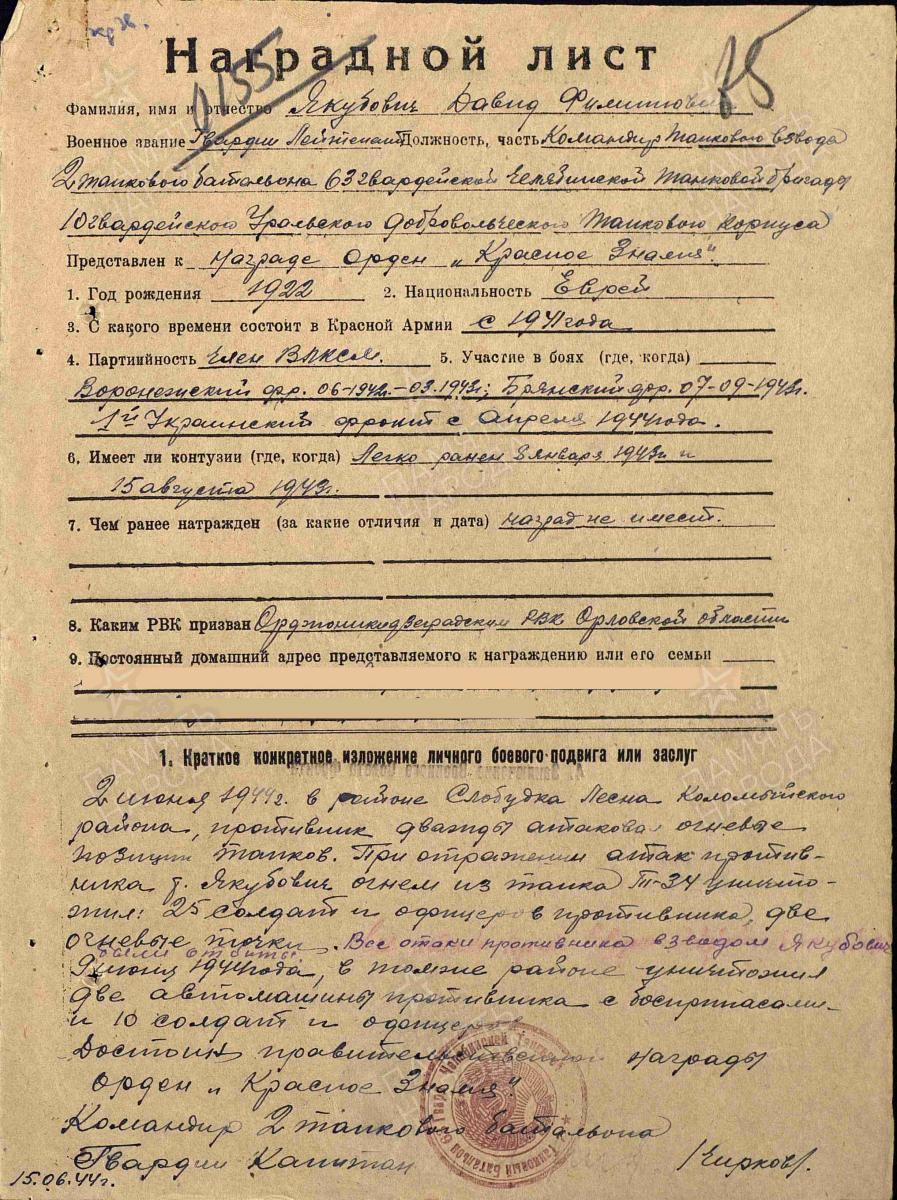 Наградной лист
1155
75
Фамилия, имя и отчество Якубович Давид Филиппович
Военное звание Гвардии Лейтенант Должность, часть Командир танкового взвода
2 танкового батальона 63 гвардейской Челябинской Танковой бригады
10 гвардейского Уральского Добровольческого Танкового Корпуса
Представлен к награде Орден „Красное Знамя".
1. Год рождения 1922 2. Национальность Еврей
3. С какого времени состоит в Красной Армии с 1941 года
4. Партиийность член ВЛКСМ. 5. Участие в боях (где, когда)
Воронежский фр. 06-1942г.-03.1943г; Брянский фр. 07-09-1943г.
1й Украинский фронт с Апреля 1944 года.
6. Имеет ли контузии (где, когда) Легко ранен 8 января 1943г и
15 августа 1943г.
7. Чем ранее натражден (за какие отличия и дата) наград не имеет.
8. Каким РВК призван Орджоникидзеградским РВК Орловской области
9. Постоянный домашний адрес представляемого к награждению или его семьи
1. Краткое конкретное изложение личного боевого подвига или заслуг
2 июня 1944г. в районе Слободка Лесна Коломыйского
района, противник дважды атаковал огневые
позиции танков. При отражении атак против-
ника т. Якубович огнем из танка Т-34 уничто-
жил: 25 солдат и офицеров противника, две
огневые точки. Все атаки противника взводом Якубович
были отбиты.
9 июня 1944 года, в том же районе уничтожил
две автомашины противника с боеприпасами
и 10 солдат и офицеров
Достоин правительственной награды
Орден „Красное Знамя".
Командир 2 танкового батальона
Гвардии Капитан
15.06.44г.
ПАМЯТЬ НАРОДА